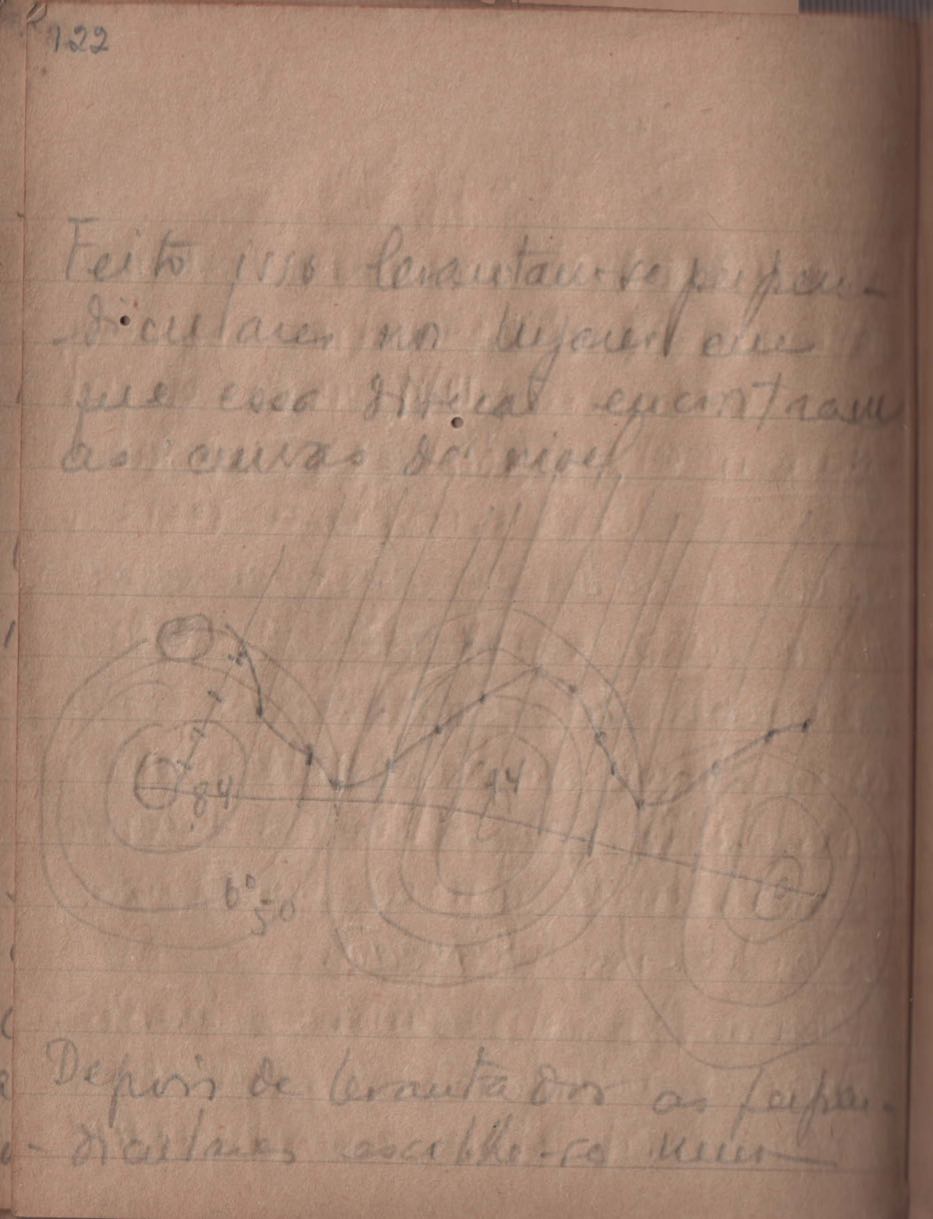 122
Feito isso levantam-se perpen-
diculares nos lugares em
que essa diretriz encontram
as curvas de nivel
84
44
60
50
Depois de levantadas as perpen-
diculares escolhe-se num